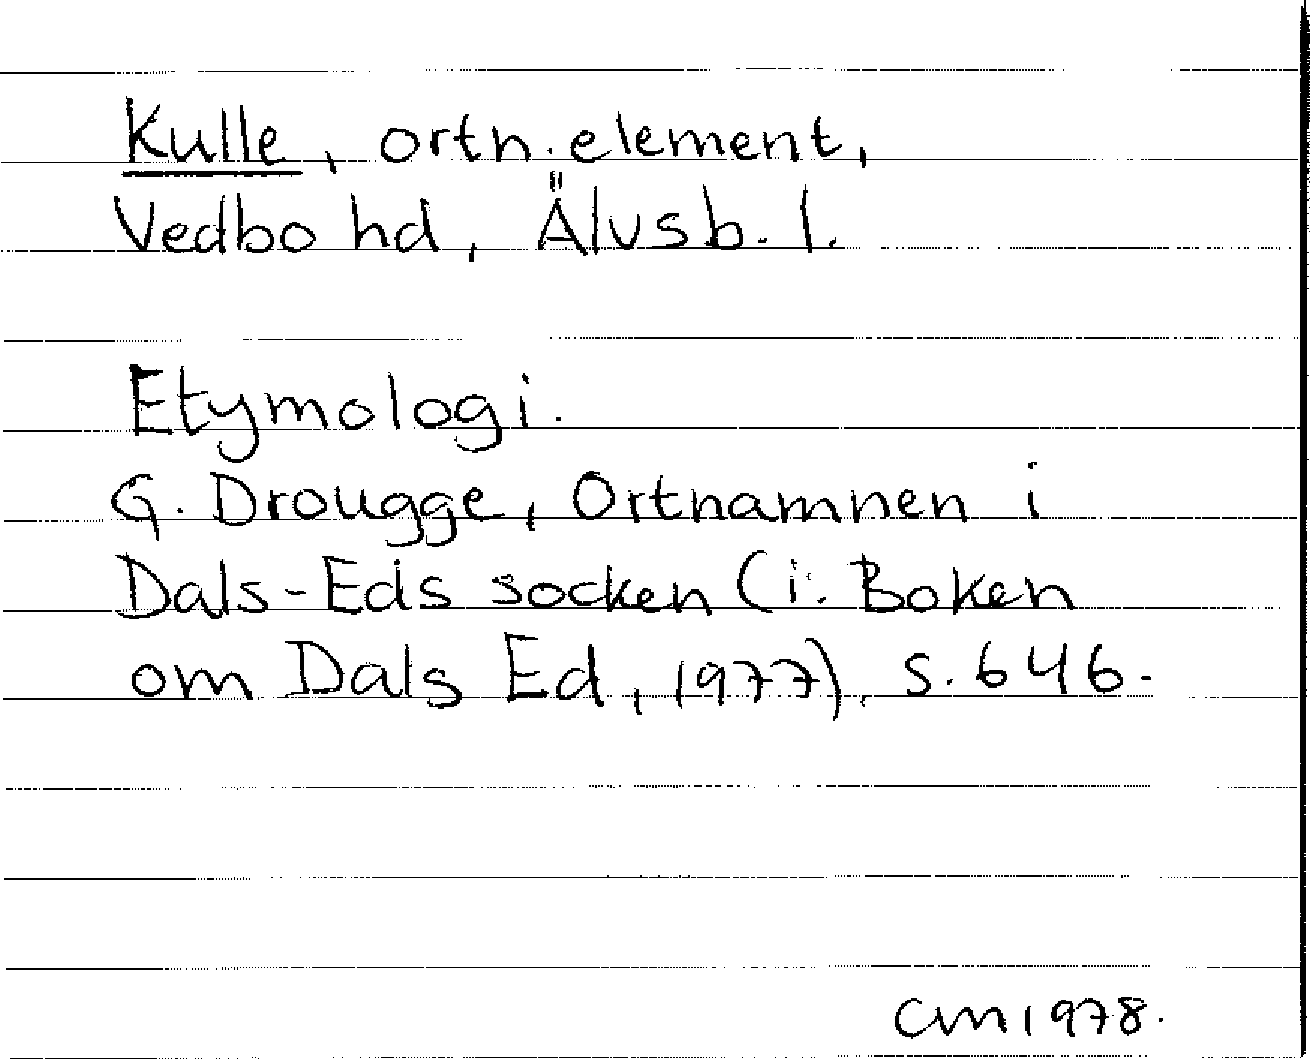 Kulle, ortn.element,
Vedbo hd, Älvsb. l.
Etymologi.
G. Drougge, Ortnamnen i
Dals-Eds socken (i: Boken
om Dals Ed, 1977), s. 646.
CM 1978.